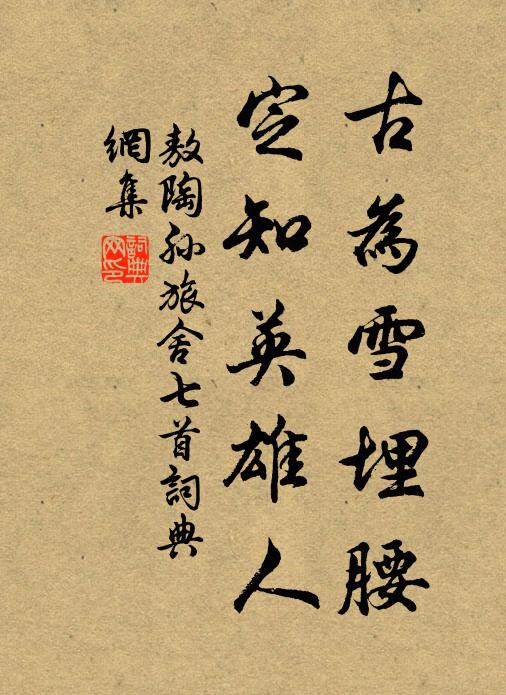 古為雪埋腰
定知英雄人
敖陶孫旅舍七首詞典
網集
詞典
网印